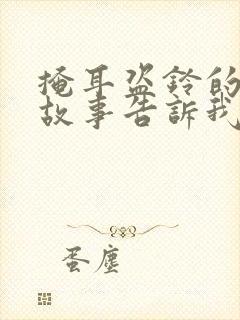 掩耳盗鈴的
故事告訴我
蛋塵